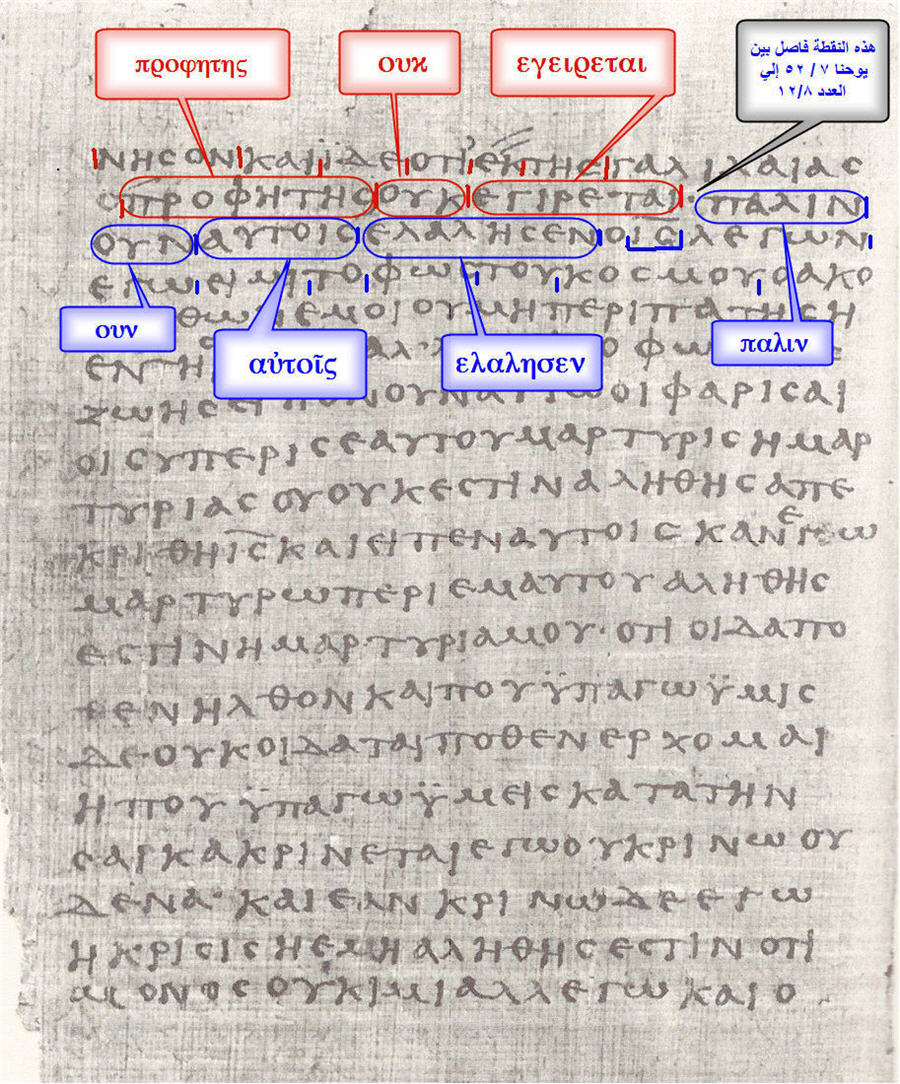 προφητης
ουκ
εγειρεται
هذه النقطة فاصل بين
يوحنا ٧ / ٥٢ إلي
العدد ١٢/٨
ΝΗϹΟΝΚΑΙΪΔΕΟΤΙΕΚΤΗϹΓΑΛΙΛΑΙΑϹ
ΟΠΡΟΦΗΤΗϹΟΥΚΕΓΙΡΕΤΑΙ·ΠΑΛΙΝ
ΟΥΝΑΥΤΟΙϹΕΛΑΛΗϹΕΝΟΙϹΛΕΓΩΝ
ΕΓΩΕΙΜΙΤΟΦΩϹΤΟΥΚΟϹΜΟΥΟΑΚΟ
ΘΩΝΕΜΟΙΟΥΜΗΠΕΡΙΠΑΤΗϹΗ
ουν
αὐτοῖς
ελαλησεν
παλιν
ΕΝΤΗ
ΖΩΗϹ ΟΥΝΑΥΤΩΟΙΦΑΡΙϹΑΙ
ΟΙϹΥΠΕΡΙϹΕΑΥΤΟΥΜΑΡΤΥΡΙϹΗΜΑΡ
ΤΥΡΙΑϹΟΥΟΥΚΕϹΤΙΝΑΛΗΘΗϹΑΠΕ
ΚΡΙΘΗΙϹΚΑΙΕΙΠΕΝΑΥΤΟΙϹΚΑΝΕΓΩ
ΜΑΡΤΥΡΩΠΕΡΙΕΜΑΥΤΟΥΑΛΗΘΗϹ
ΕϹΤΙΝΗΜΑΡΤΥΡΙΑΜΟΥ·ΟΤΙΟΙΔΑΠΟ
ΘΕΝΗΛΘΟΝΚΑΙΠΟΥΫΠΑΓΩΫΜΙϹ
ΔΕΟΥΚΟΙΔΑΤΑΙΠΟΘΕΝΕΡΧΟΜΑΙ
ΗΠΟΥΫΠΑΓΩΫΜΕΙϹΚΑΤΑΤΗΝ
ϹΑΡΚΑΚΡΙΝΕΤΑΙΕΓΩΟΥΚΡΙΝΩΟΥ
ΔΕΝΑ·ΚΑΙΕΑΝΚΡΙΝΩΔΕΕΓΩ
ΗΚΡΙϹΙϹΗΕΜΗΑΛΗΘΗϹΕϹΤΙΝΟΤΙ
ΜΟΝΟϹΟΥΚΙΜΙΑΛΛΕΓΩΚΑΙΟ